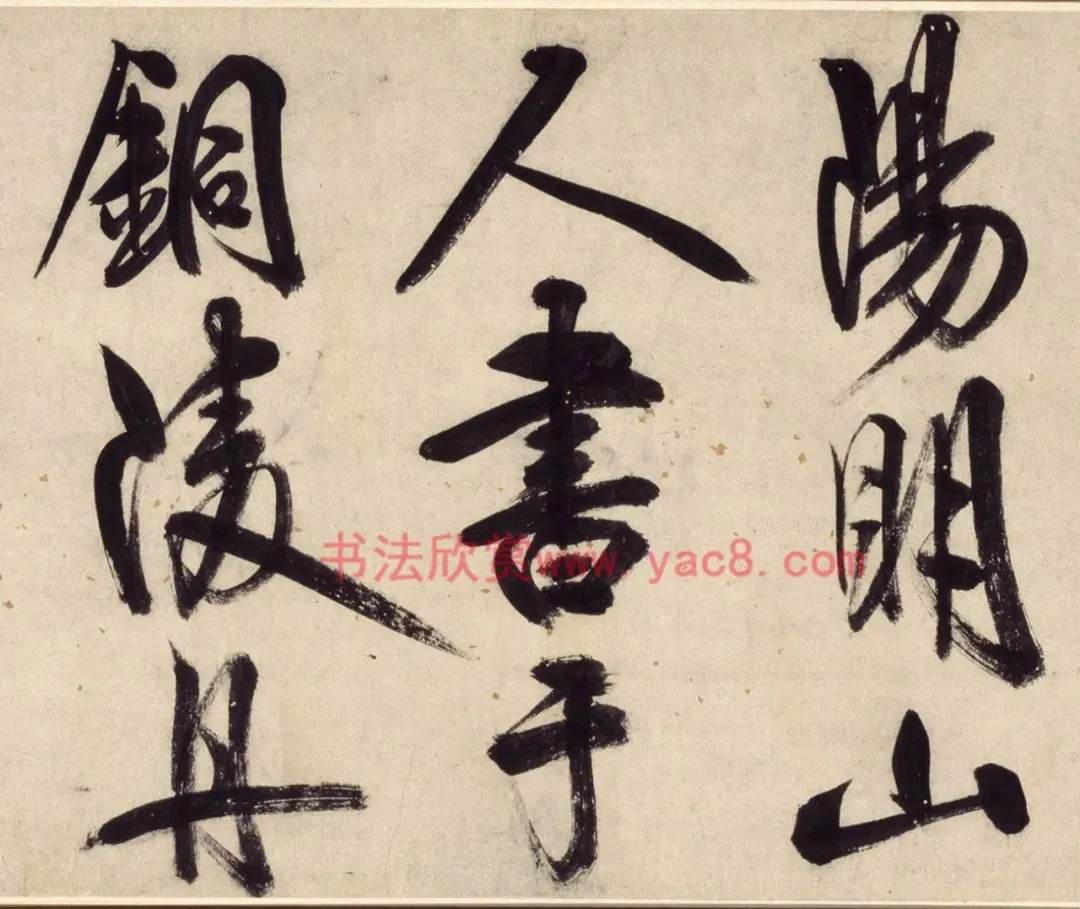 陽明山
人書于
銅陵舟
书法欣赏www.yac8.com